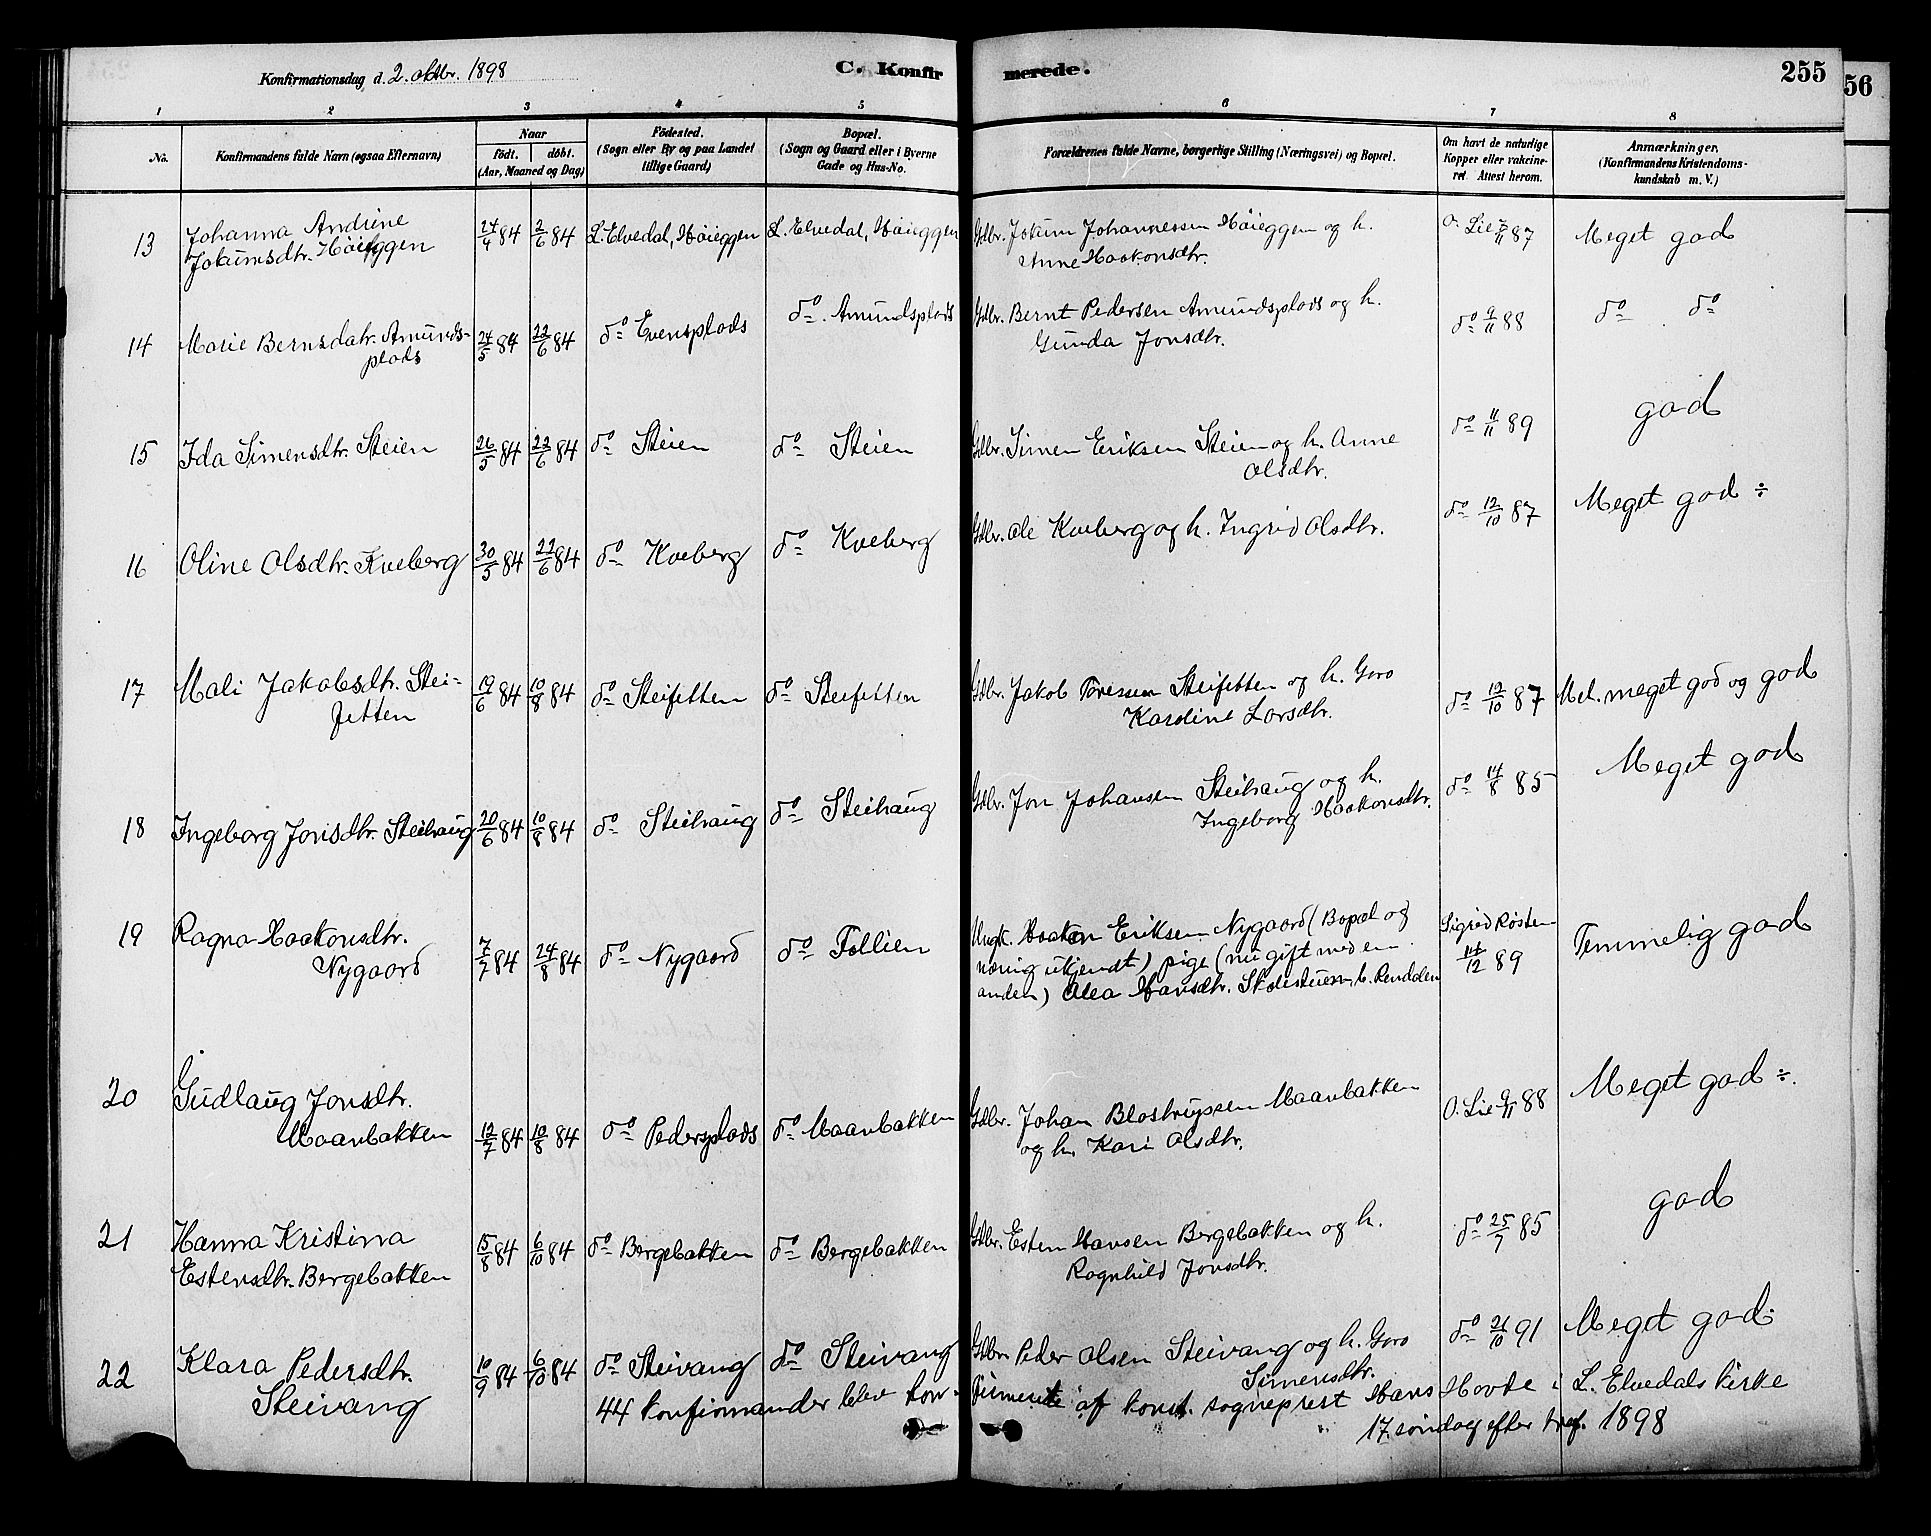 Konfirmationsdag d. 2. oktbr. 1898 C. Konfirmerede. 255
56
1 2 3 4 5 6 7 8
No. Konfirmandens fulde Navn (ogsaa Efternavn) Naar født. døbt. (Aar, Maaned og Dag) Fødested. (Sogn eller By og paa Landet tillige Gaard) Bopæl. (Sogn og Gaard eller i Byerne Gade og Hus-No. Forældrenes fulde Navne, borgerlige Stilling (Næringsvei) og Bopæl. Om havt de naturlige Kopper eller vakcineret. Attest herom. Anmærkninger. (Konfirmandens Kristendomskundskab m. V.)
13 Johanna Andrine 24/4 84 2/6 84 L. Elvedal, Høieggen L. Elvedal, Høieggen Gdbr. Jokum Johannessen Høieggen og h. O. Lie 7/11 87 Meget god
Jokumsdtr. Høieggen Anne Haakonsdtr.
14 Marie Berntsdatr. Amunds- 24/5 84 22/6 84 do Evensplads do Amundsplads Gdbr. Bernt Pedersen Amundsplads og h. do 9/11 88 do do
plads Gunda Jonsdtr.
15 Ida Simensdtr. Steien 26/5 84 22/6 84 do Steien do Steien Gdbr. Simen Eriksen Steien og h. Anne do 11/11 89 god
Olsdtr.
16 Oline Olsdtr. Kveberg 30/5 84 22/6 84 do Kveberg do Kveberg Gdbr. Ole Kveberg og h. Ingrid Olsdtr. do 12/10 87 Meget god ÷
17 Mali Jakobsdtr. Stei- 19/6 84 10/8 84 do Steifetten do Steifetten Gdbr. Jakob Toresen Steifetten og h. Goro do 12/10 87 Mel. meget god og god
fetten Karoline Larsdtr.
18 Ingeborg Jonsdtr. Steihaug 20/6 84 10/8 84 do Steihaug do Steihaug Gdbr. Jon Johansen Steihaug og h. do 14/8 85 Meget god
Ingeborg Haakonsdtr.
19 Ragna Haakonsdtr. 7/7 84 24/8 84 do Nygaard do Follien Ungk. Haakon Eriksen Nygaard (Bopæl og Sigrid Røsten Temmelig god
Nygaard næring ukjendt) pige (nu gift med en 14/12 89
anden) Olea Hansdtr. Skolestuen, b. Rendalen
20 Gudlaug Jonsdtr. Gdbr. Johan Blostrupsen Maanbakken O. Lie 9/11 88 Meget god ÷.
Maanbakken 12/7 84 10/8 84 do Pedersplads do Maanbakken og h. Kari Olsdtr.
21 Hanna Kristina 15/8 84 6/10 84 do Bergebakken do Bergebakken Gdbr. Esten Hansen Bergebakken og h. do 25/7 85 god
Estensdtr. Bergebakken Ragnhild Jonsdtr.
22 Klara Pedersdtr. 10/9 84 6/10 84 do Steivang do Steivang Gdbr. Peder Olsen Steivang og h. Goro do 21/10 91 Meget god÷
Steivang Simensdtr.
44 konfirmander blev kon- firmerede af konst. sogneprest Hans Hovde i L. Elvedals kirke
17. søndag efter tref. 1898